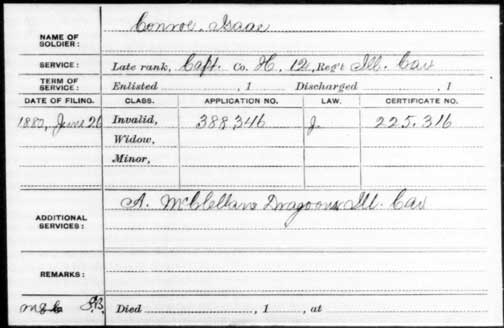 NAME OF SOLDIER: Conroe, Isaac
SERVICE: Late rank, Capt. Co. H, 12, Reg't Ill. Cav
TERM OF SERVICE: Enlisted , 1 Discharged , 1
DATE OF FILING. CLASS. APPLICATION NO. LAW. CERTIFICATE NO.
1880, June 26 Invalid, 388346 J. 225.316
Widow,
Minor,
ADDITIONAL SERVICES: A. McClellans Dragoons Ill. Cav
REMARKS:
Died , 1 , at